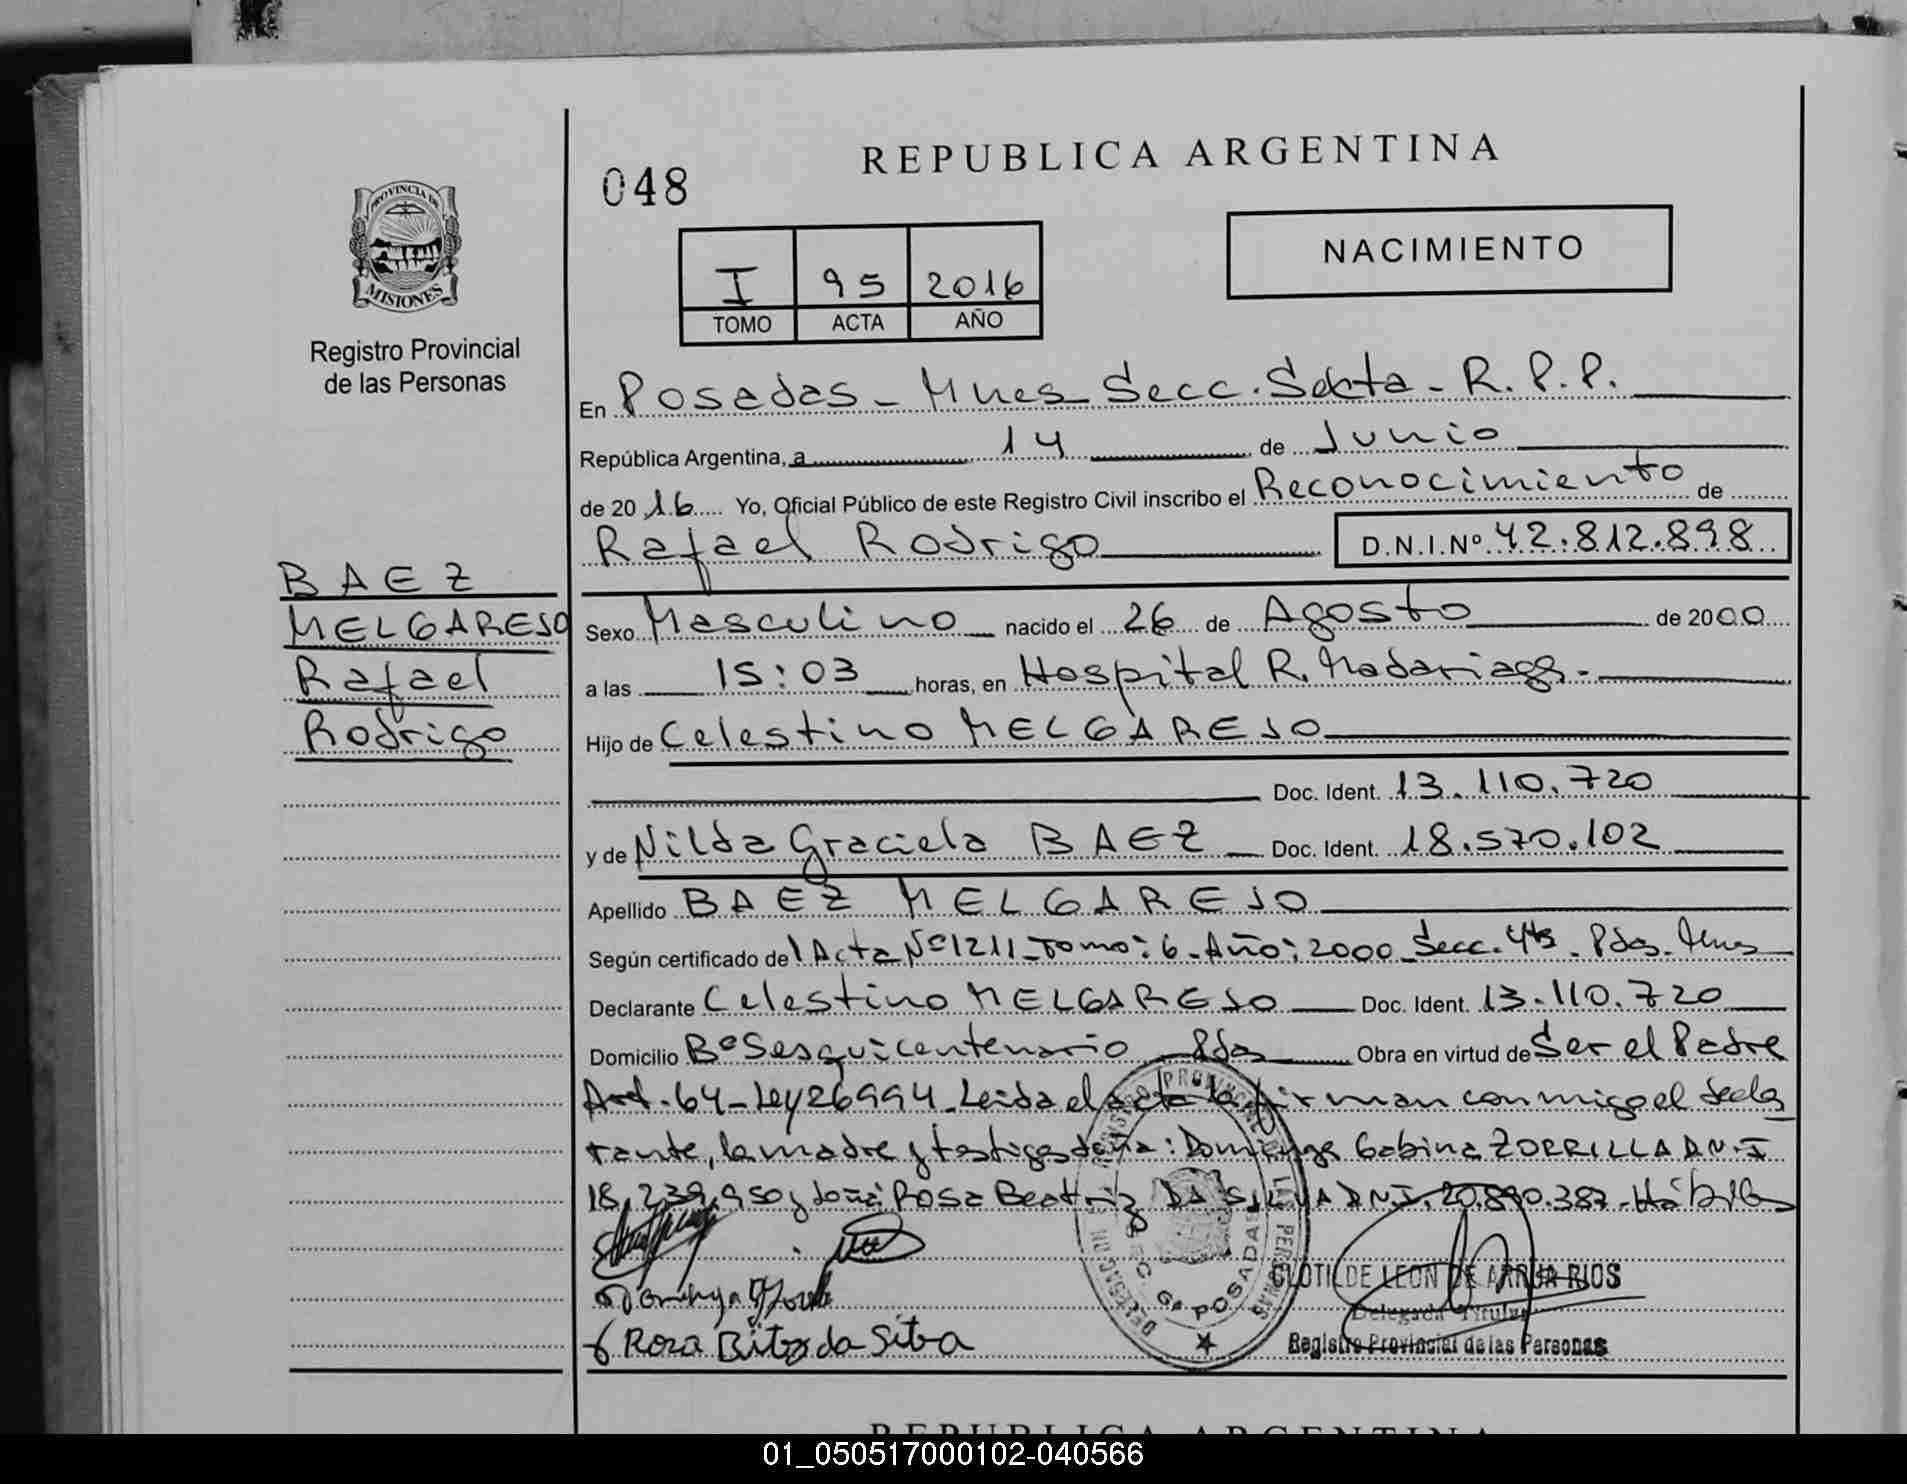 REPUBLICA ARGENTINA
048
NACIMIENTO
I 95 2016
TOMO ACTA AÑO
PROVINCIA DE
MISIONES
Registro Provincial
de las Personas
En Posadas - Mnes Secc. Sexta - R.P.P.
República Argentina, a 14 de Junio
de 2016 Yo, Oficial Público de este Registro Civil inscribo el Reconocimiento de
Rafael Rodrigo D.N.I.Nº 42.812.898
BAEZ
MELGAREJO
Rafael
Rodrigo
Sexo Masculino nacido el 26 de Agosto de 2000
a las 15:03 horas, en Hospital R. Madariaga.-
Hijo de Celestino MELGAREJO
Doc. Ident. 13.110.720
y de Nilda Graciela BAEZ Doc. Ident. 18.570.102
Apellido BAEZ MELGAREJO
Según certificado de 1 Acta Nº 1211 - Tomo: 6 - Año: 2000 - Secc. 4ta - Pdas. Mnes
Declarante Celestino MELGAREJO Doc. Ident. 13.110.720
Domicilio Bº Sesquicentenario - Pdas Obra en virtud de Ser el Padre
Art. 64 - Ley 26994 - Leida el acta la firman conmigo el decla
rante, la madre y testigos doña: Dominga Gabina ZORRILLA D.N.I
18.239.950 y doña Rosa Beatriz DA SILVA D.N.I. 20.890.387 - Hábiles
Dominga
Rosa Bitris da Silva
REGISTRO PROVINCIAL DE LAS PERSONAS
DELEGACION SECC. 6ª POSADAS
CLOTILDE LEON DE ARRUA RIOS
Delegada Titular
Registro Provincial de las Personas
REPUBLICA ARGENTINA
01_050517000102-040566